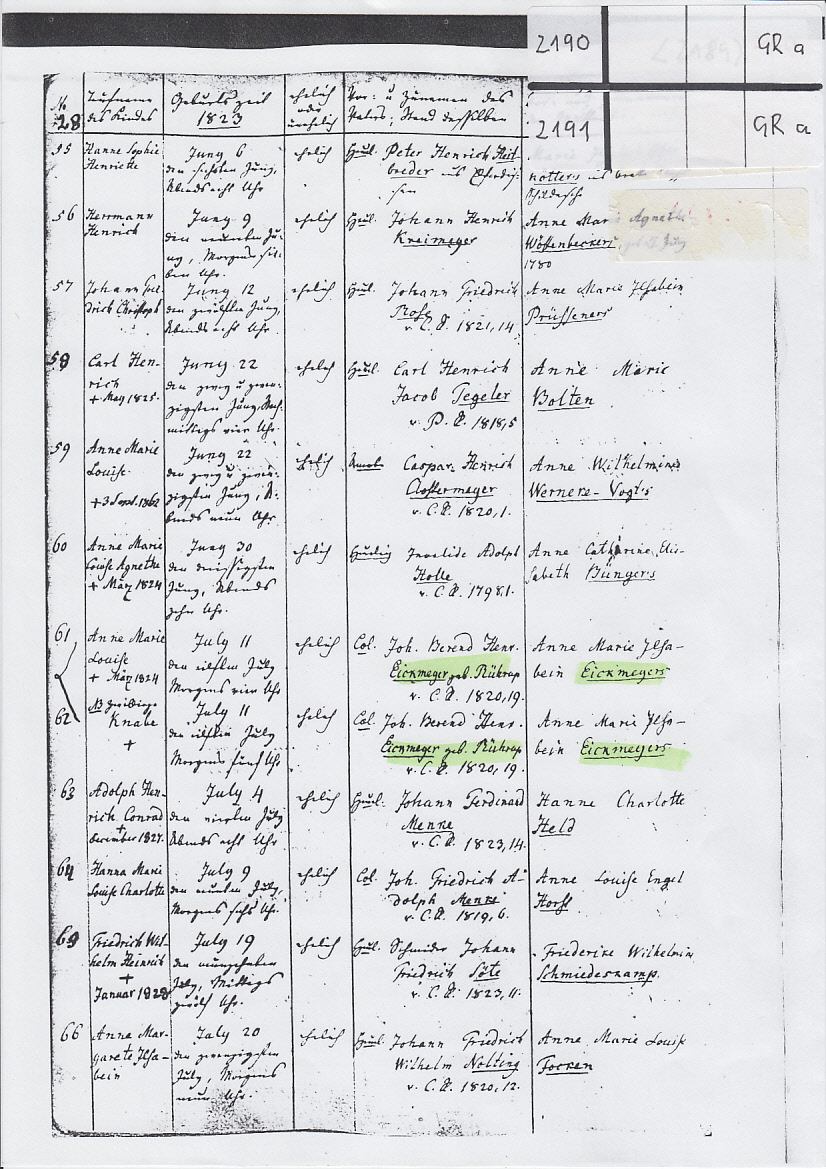 2190 GR a
2191 GR a
No 28
Rufname des Kindes
Geburtszeit 1823
ehelich oder unehelich
Vor- u Zunamen des Vaters, Stand desselben
Hanne Sophie Henriette
Juny 6
den sechsten Juny, Abends acht Uhr
ehelich
Heul. Peter Henrich Heitbreder aus
Kötters aus
56
Herrmann Henrich
Juny 9
den neunten Juny, Morgens sieben Uhr.
ehelich
Heul. Johann Henrich Kreimeyer
Anne Marie Agneth
1780
57
Johann Friedrich Christoph
Juny 12
den zwölften Juny, Abends acht Uhr
ehelich
Heul. Johann Friedrich Rose
v. C. P. 1821, 14.
Anne Marie Ilsabein Prüssners
58
Carl Henrich
+ May 1825.
Juny 22
den zwey u zwanzigsten Juny, Nachmittags vier Uhr.
ehelich
Heul. Carl Henrich Jacob Tegeler
v. P. P. 1818, 5
Anne Marie Bolten
59
Anne Marie Louise.
+ 3 Sept. 1862
Juny 22
den zwey u zwanzigsten Juny, Abends neun Uhr.
ehelich
Caspar Henrich Clostermeyer
v. C. P. 1820, 1.
Anne Wilhelmine Wernere-Vogt's
60
Anne Marie Louise Agnethe
+ März 1824
Juny 30
den dreissigsten Juny, Abends zehn Uhr.
ehelich
Invalide Adolph Holle
v. C. P. 1798.1.
Anne Catharine Elisabeth Büngers
61
Anne Marie Louise
+ März 1824
July 11
den eilften July Morgens vier Uhr
ehelich
Col. Joh. Berend Henr. Eickmeyer geb. Rükrap
v. C. P. 1820, 19.
Anne Marie Ilsabein Eickmeyers
62
Knabe
+
July 11
den eilften July Morgens fünf Uhr
ehelich
Col. Joh. Berend Henr. Eickmeyer geb. Rükrap
v. C. P. 1820, 19.
Anne Marie Ilsabein Eickmeyers
63
Adolph Henrich Conrad
+
December 1827.
July 4
den vierten July Abends acht Uhr
ehelich
Heul. Johann Ferdinand Menke
v. C. P. 1823, 14.
Hanne Charlotte Held
64
Hanna Marie Louise Charlotte
July 9
den neunten July, Morgens sechs Uhr.
ehelich
Col. Joh. Friedrich Adolph Menke
v. C. P. 1819, 6.
Anne Louise Engel Horst
Friedrich Wilhelm Heinrich
+
Januar 1828
July 19
den neunzehnten July, Mittags zwölf Uhr.
ehelich
Heul. Schneider Johann Friedrich Söte
v. C. P. 1823, 11.
Friederike Wilhelmin Schmiedeskamp.
66
Anna Margarete Ilsabein
July 20
den zwanzigsten July, Morgens neun Uhr.
ehelich
Heul. Johann Friedrich Wilhelm Nolting
v. C. P. 1820, 12.
Anne Marie Louise Focken